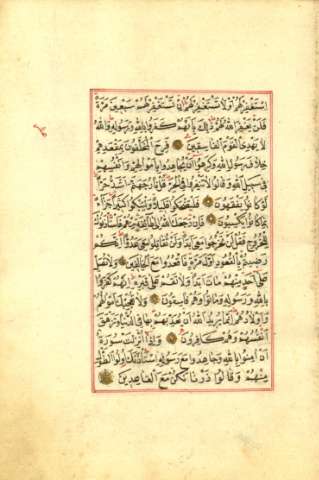 استغفر لهم او لا تستغفر لهم ان تستغفر لهم سبعين مرة
فلن يغفر الله لهم ذلك بانهم كفروا بالله ورسوله والله
لا يهدي القوم الفاسقين فرح المخلفون بمقعدهم
خلاف رسول الله وكرهوا ان يجاهدوا باموالهم وانفسهم
في سبيل الله وقالوا لا تنفروا في الحر قل نار جهنم اشد حرا
لو كانوا يفقهون فليضحكوا قليلا وليبكوا كثيرا جزاء
بما كانوا يكسبون فان رجعك الله الى طائفة منهم فاستاذنوك
للخروج فقل لن تخرجوا معي ابدا ولن تقاتلوا معي عدوا انكم
رضيتم بالقعود اول مرة فاقعدوا مع الخالفين ولا تصل
على احد منهم مات ابدا ولا تقم على قبره انهم كفروا
بالله ورسوله وماتوا وهم فاسقون ولا تعجبك اموالهم
واولادهم انما يريد الله ان يعذبهم بها في الدنيا وتزهق
انفسهم وهم كافرون واذا انزلت سورة
ان امنوا بالله وجاهدوا مع رسوله استاذنك اولوا الطول
منهم وقالوا ذرنا نكن مع القاعدين